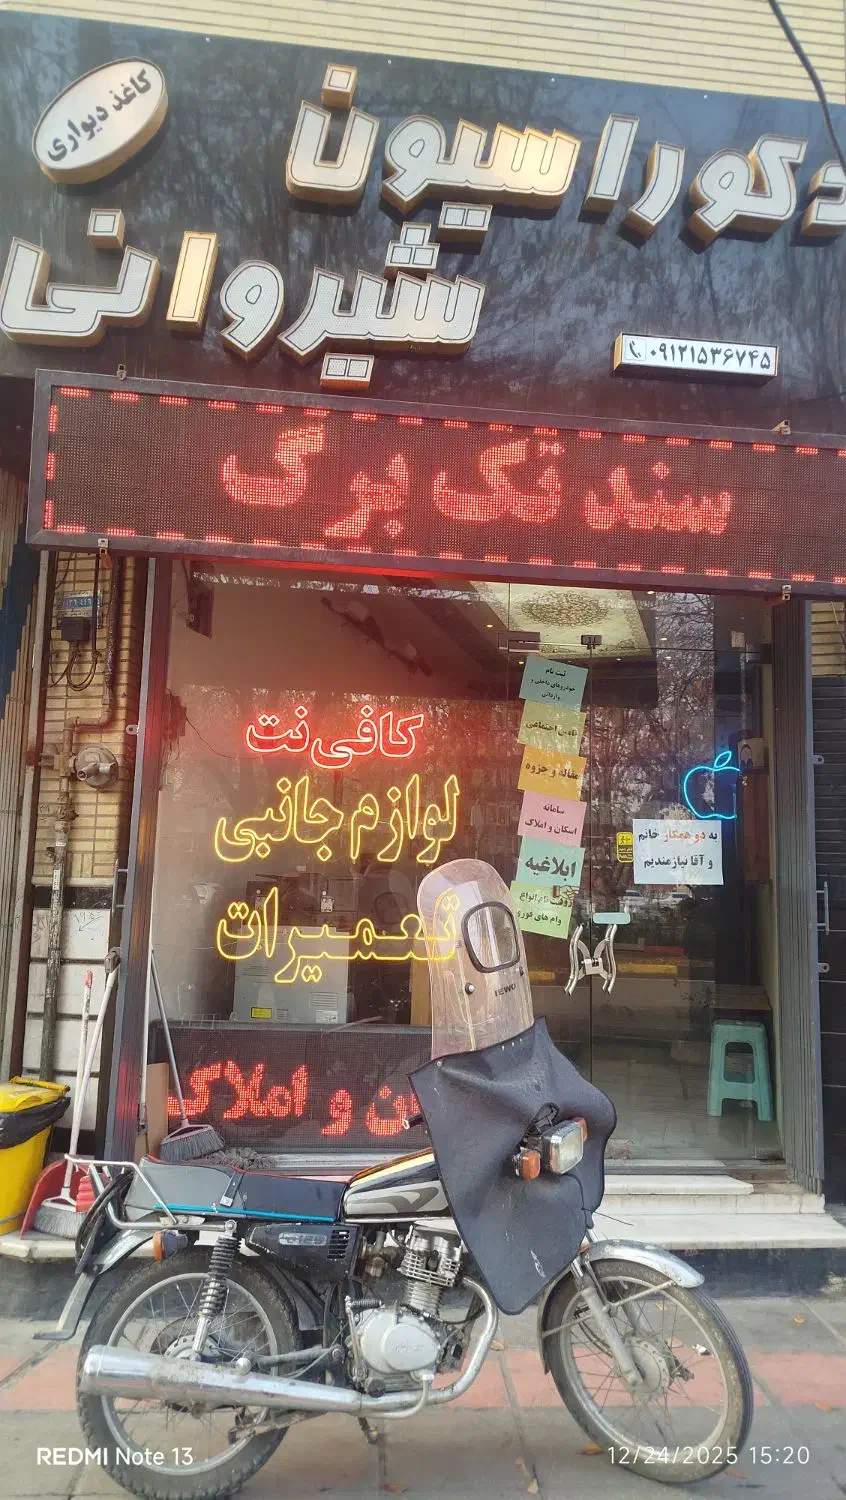 دکوراسیون
کاغذ دیواری
شیروانی
۰۹۱۲۱۵۳۶۷۴۵
سند تک برگ
ثبت نام
خودروهای داخلی و
وارداتی
تامین اجتماعی
کافی نت
مقاله و جزوه
لوازم جانبی
سامانه
اسکان و املاک
به دو همکار خانم
و آقا نیازمندیم
ابلاغیه
انواع
وام های فوری
تعمیرات
و املاک
REDMI Note 13
12/24/2025 15:20